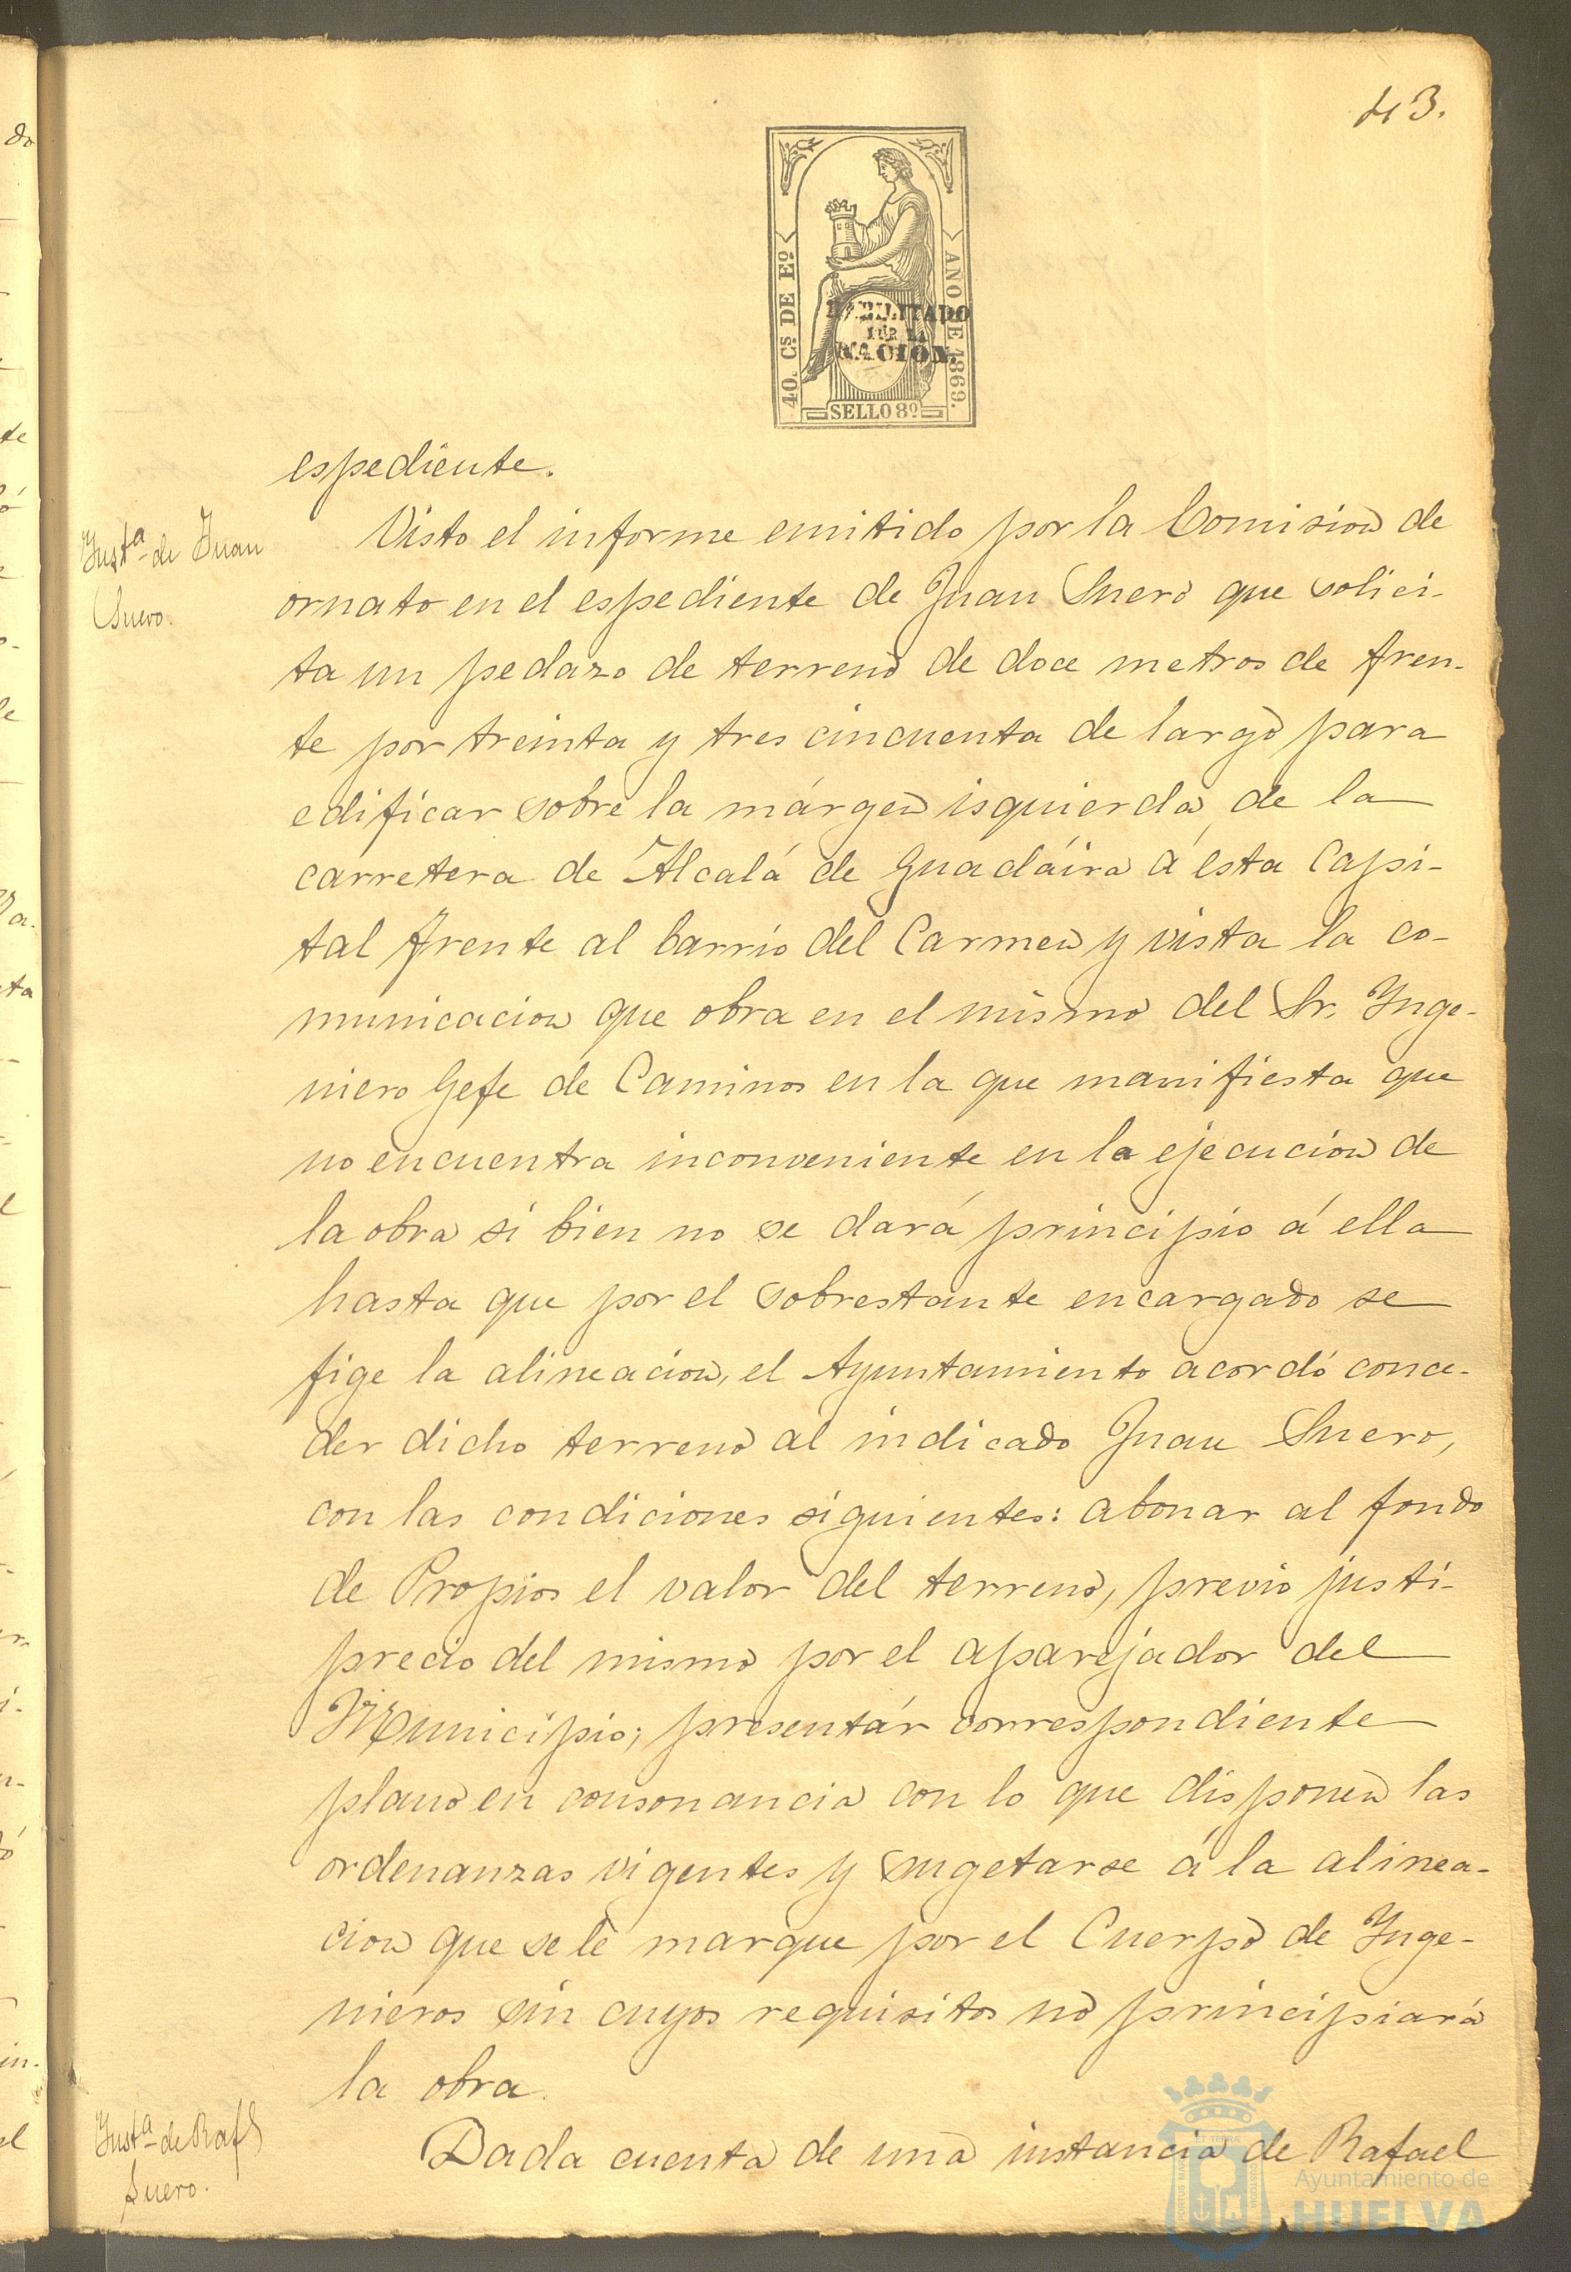 43.
40. Cs DE Eo
AÑO DE 1869.
HABILITADO
POR LA
NACION.
SELLO 8º
espediente.
Ynsta de Juan
Suero.
Visto el informe emitido por la Comision de
ornato en el espediente de Juan Suero que solici-
ta un pedazo de terreno de doce metros de fren-
te por treinta y tres cincuenta de largo para
edificar sobre la márgen isquierda de la
carretera de Alcalá de Guadáira á esta Capi-
tal frente al barrio del Carmen y vista la co-
municacion que obra en el mismo del Sr. Ynge-
niero Gefe de Caminos en la que manifiesta que
no encuentra inconveniente en la ejecucion de
la obra si bien no se dará principio á ella
hasta que por el sobrestante encargado se
fige la alineacion, el Ayuntamiento acordó conce-
der dicho terreno al indicado Juan Suero,
con las condiciones siguientes: abonar al fondo
de Propios el valor del terreno, previo justi-
precio del mismo por el aparejador del
Municipio; presentár correspondiente
plano en consonancia con lo que disponen las
ordenanzas vigentes y sugetarse á la alinea-
cion que se le marque por el Cuerpo de Ynge-
nieros sin cuyos requisitos no principiará
la obra.
Ynsta de Rafl
Suero.
Dada cuenta de una instancia de Rafael
Ayuntamiento de
HUELVA